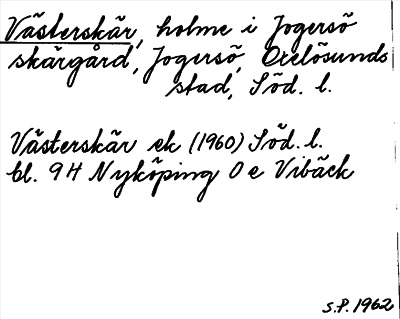 Västerskär, holme i Jogersö
skärgård, Jogersö, Oxelösunds
stad, Söd. l.
Västerskär ek (1960) Söd. l.
bl. 9 H Nyköping 0 e Vibäck
S.P. 1962